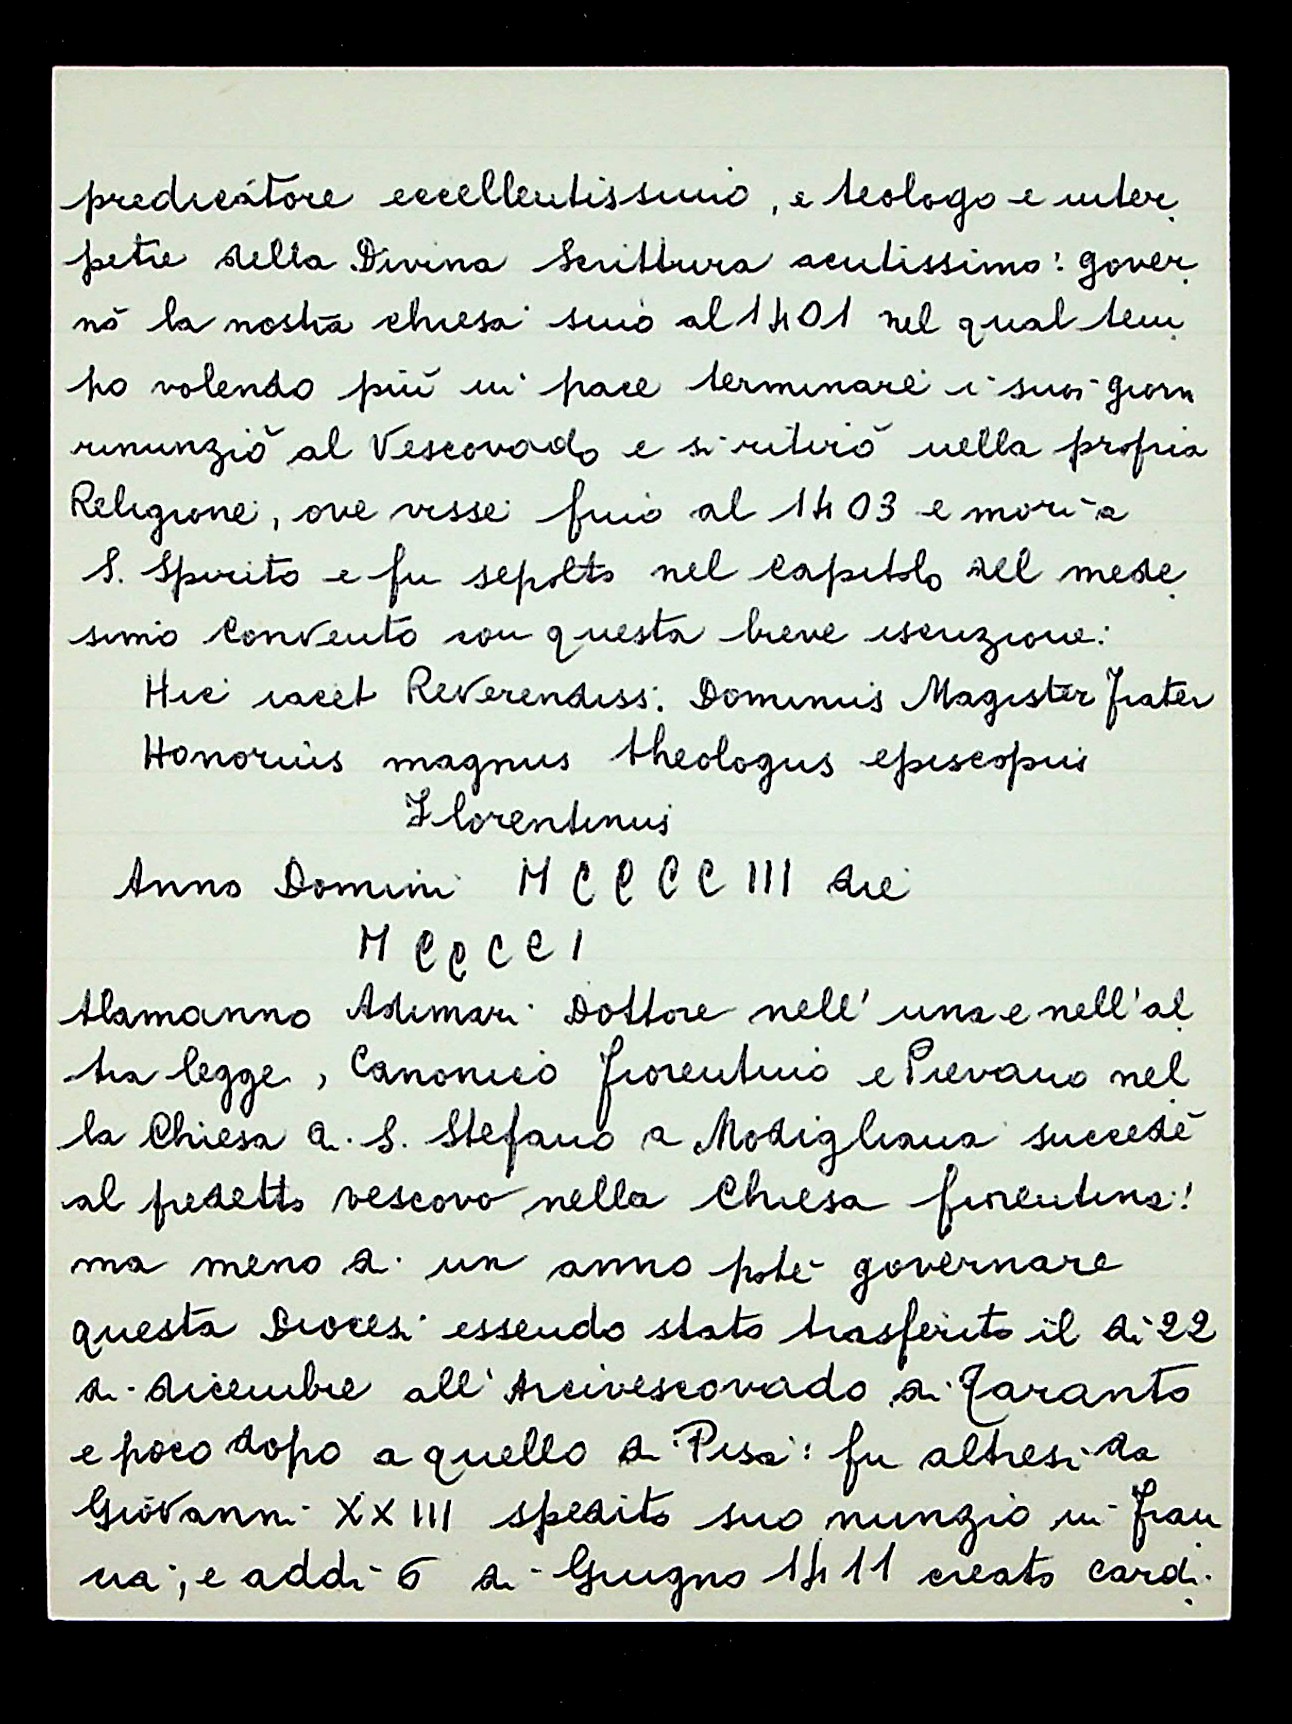 predicatore eccellentissimo, e teologo e inter
petre della Divina Scrittura acutissimo: gover
nò la nostra chiesa sino al 1401 nel qual tem
po volendo più in pace terminare i suoi giorn
rinunziò al Vescovado e si ritirò nella propria
Religione, ove visse fino al 1403 e morì a
S. Spirito e fu sepolto nel Capitolo del mede
simo Convento con questa breve iscrizione:
Hic iacet Reverendiss. Dominus Magister Frater
Honorius magnus theologus episcopus
Florentinus
Anno Domini MCCCCIII die
MCCCCI
Alamanno Adimari Dottore nell'una e nell'al
tra legge, Canonico Fiorentino e Pievano nel
la Chiesa di S. Stefano a Modigliana succedè
al predetto vescovo nella Chiesa fiorentina:
ma meno di un anno potè governare
questa Diocesi essendo stato trasferito il di 22
di dicembre all'Arcivescovado di Taranto
e poco dopo a quello di Pisa: fu altresì da
Giovanni XXIII spedito suo nunzio in Fran
cia; e addì 6 di Giugno 1411 creato Cardi